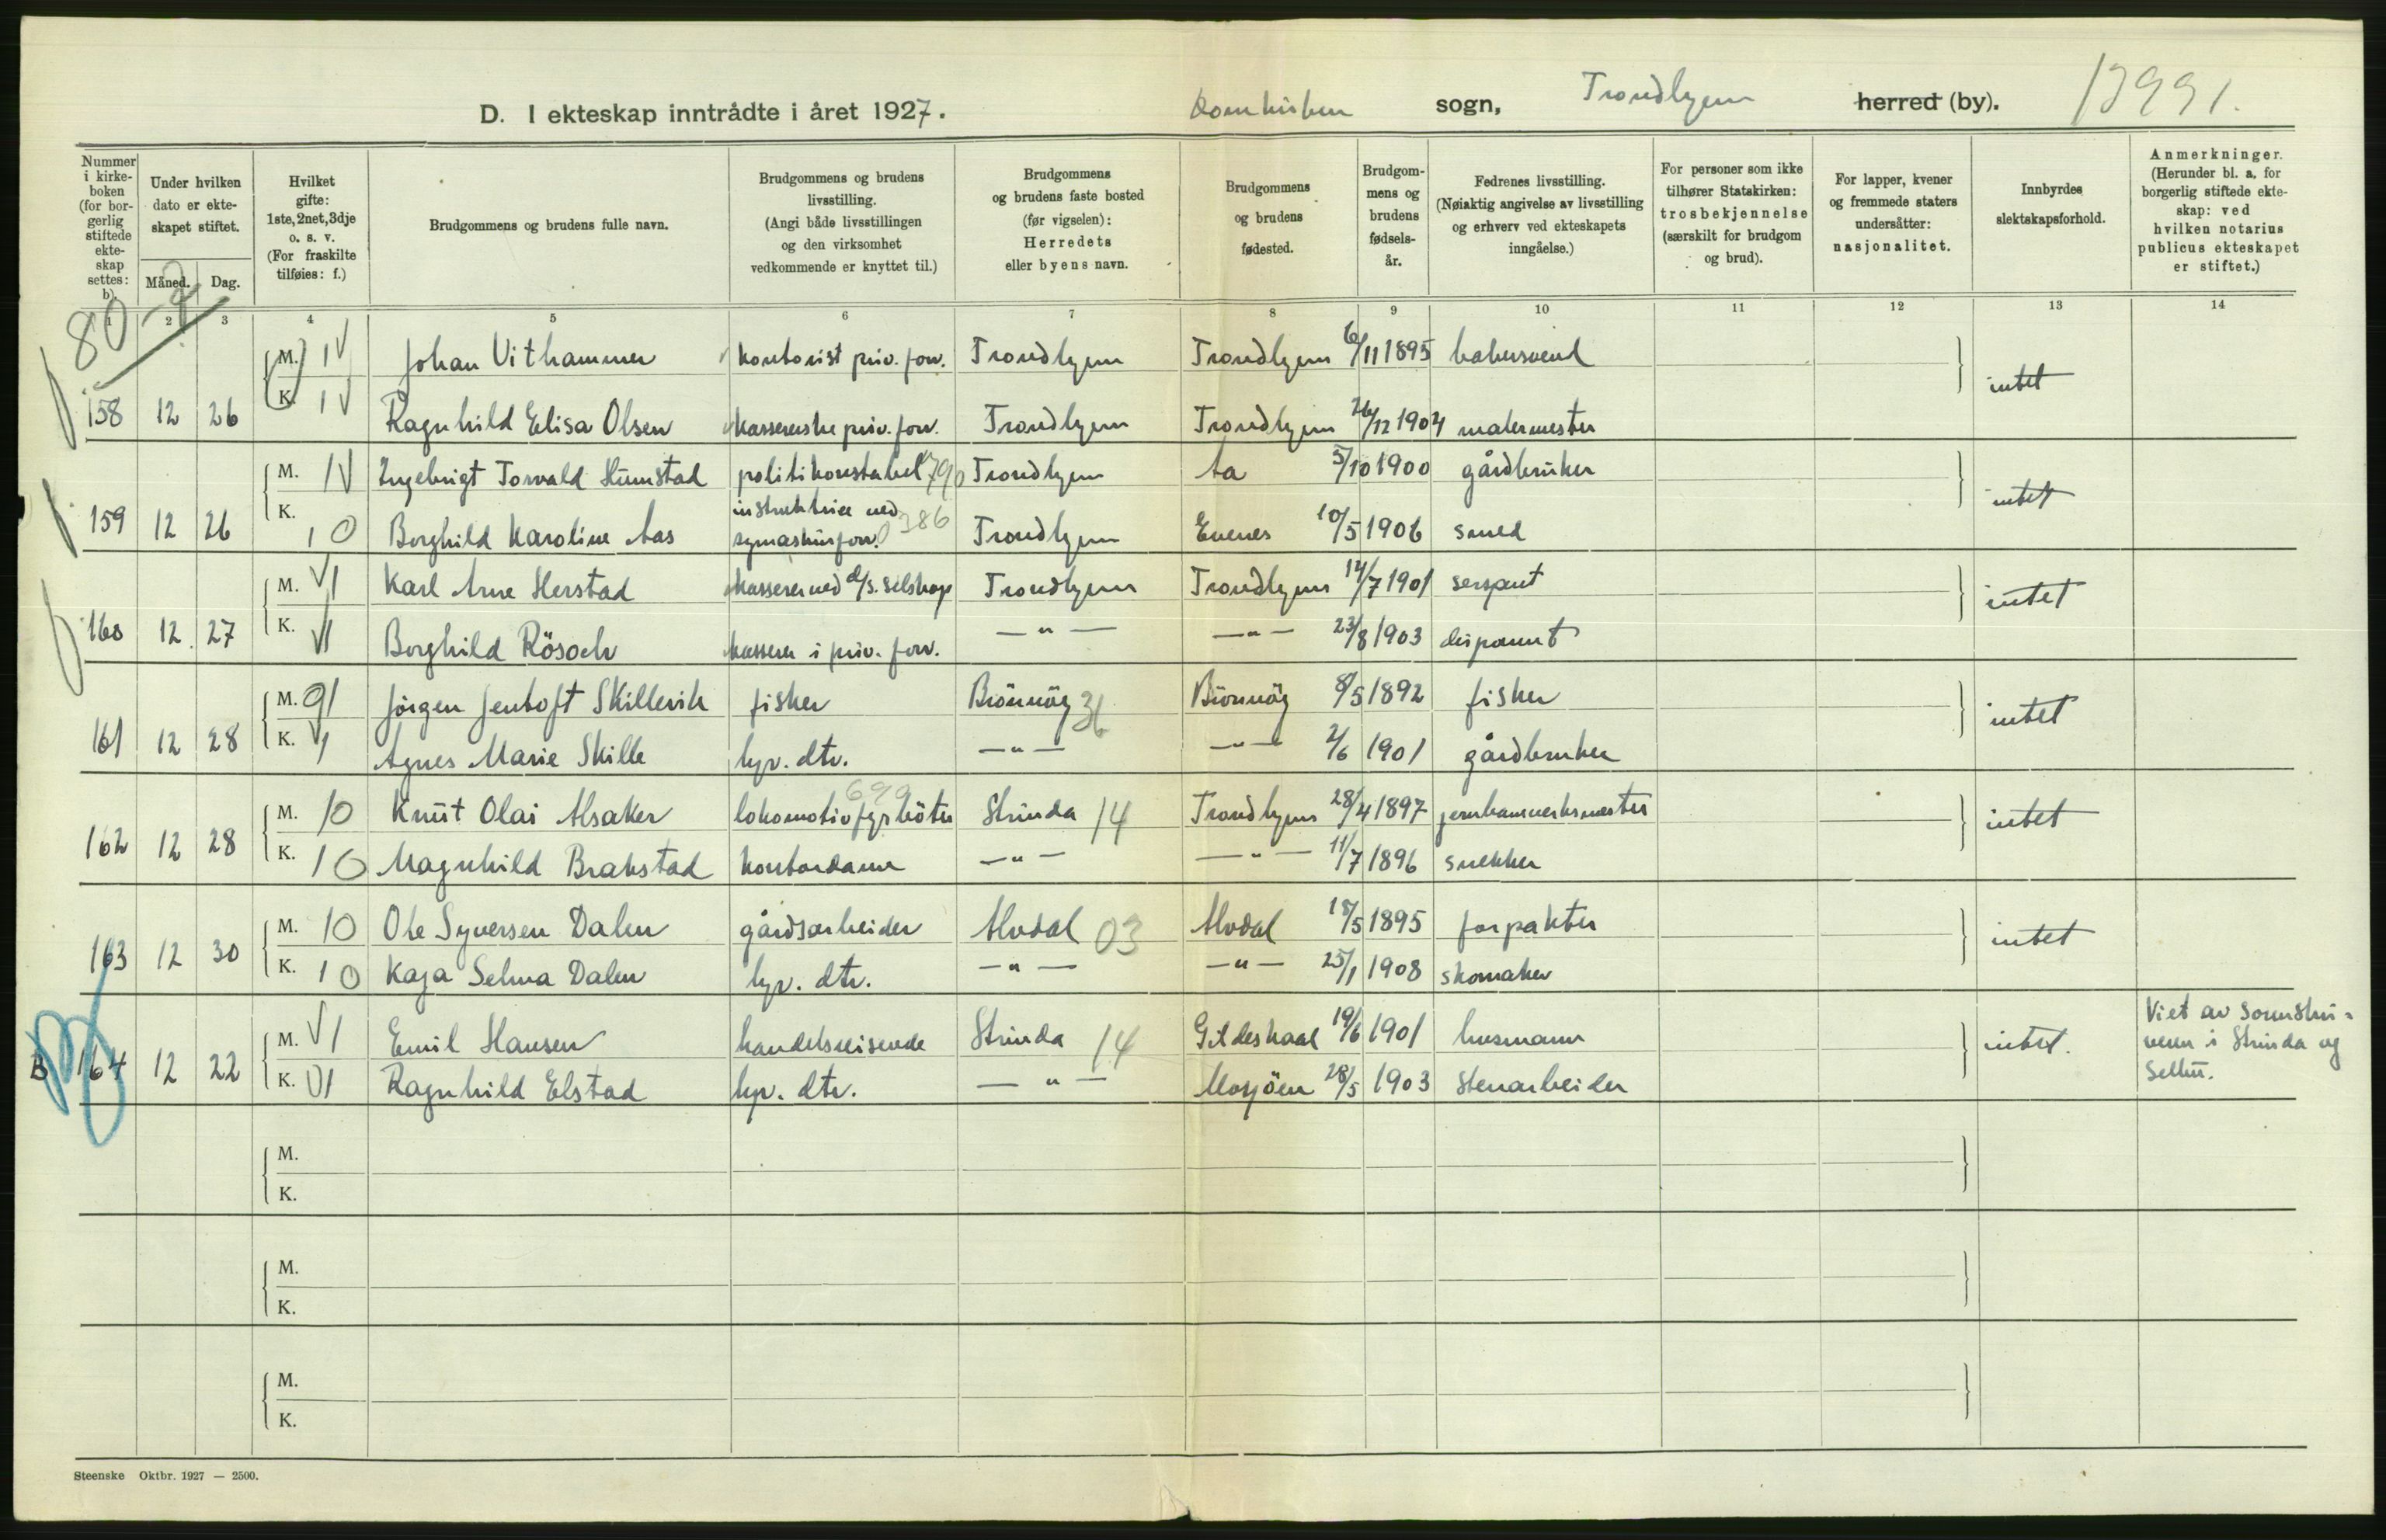 D. I ekteskap inntrådte i året 1927. Domkirken sogn, Trondhjem herred (by). 13991.
Nummer i kirkeboken (for borgerlig stiftede ekteskap settes: b).
Under hvilken dato er ekteskapet stiftet.
Måned. Dag.
Hvilket gifte: 1ste, 2net, 3dje o. s. v. (For fraskilte tilføies: f.)
Brudgommens og brudens fulle navn.
Brudgommens og brudens livsstilling. (Angi både livsstillingen og den virksomhet vedkommende er knyttet til.)
Brudgommens og brudens faste bosted (før vigselen): Herredets eller byens navn.
Brudgommens og brudens fødested.
Brudgommens og brudens fødselsår.
Fedrenes livsstilling. (Nøiaktig angivelse av livsstilling og erhverv ved ekteskapets inngåelse.)
For personer som ikke tilhører Statskirken: trosbekjennelse (særskilt for brudgom og brud).
For lapper, kvener og fremmede staters undersåtter: nasjonalitet.
Innbyrdes slektskapsforhold.
Anmerkninger. (Herunder bl. a. for borgerlig stiftede ekteskap: ved hvilken notarius publicus ekteskapet er stiftet.)
1 2 3 4 5 6 7 8 9 10 11 12 13 14
80
M. 1 Johan Vithammer kontorist priv. forr. Trondhjem Trondhjem 6/11 1895 bakersvend
intet
158 12 26 K. 1 Ragnhild Elisa Olsen kassererske priv. forr. Trondhjem Trondhjem 26/12 1904 malermester
M. 1 Ingebrigt Torvald Humstad politikonstabel 790 Trondhjem Aa 5/10 1900 gårdbruker
intet
159 12 26 K. 1 0 Borghild Karoline Aas instruktrice ved symaskinforr. 386 Trondhjem Evenes 10/5 1906 smed
M. 1 Karl Arne Herstad kasserer ved d/s. selskap Trondhjem Trondhjem 14/7 1901 sersjant
intet
160 12 27 K. 1 Borghild Rösoch kasserer i priv. forr. — " — — " — 23/8 1903 disponent
M. 1 Jörgen Jentoft Skillevik fisker Brönnöy 36 Brönnöy 8/5 1892 fisker
intet
161 12 28 K. 1 Agnes Marie Skille hjv. dtr. — " — — " — 2/6 1901 gårdbruker
699
M. 10 Knut Olai Alsaker lokomotivfyrböter Strinda 14 Trondhjem 28/4 1897 jernbaneverksmester
intet
162 12 28 K. 10 Magnhild Brakstad kontordame — " — — " — 11/7 1896 snekker
M. 10 Ole Syversen Dalen gårdsarbeider Alvdal 03 Alvdal 18/5 1895 forpakter
intet
163 12 30 K. 10 Kaja Selma Dalen hjv. dtr. — " — — " — 25/1 1908 skomaker
M. 1 Emil Hansen handelsreisende Strinda 14 Gildeskaal 19/6 1901 husmann
intet.
B 164 12 22 K. 1 Ragnhild Elstad hjv. dtr. — " — Mosjöen 28/5 1903 stenarbeider
Viet av sorenskri-
veren i Strinda og
Selbu.
M.
K.
M.
K.
M.
K.
Steenske Oktbr. 1927 — 2500.